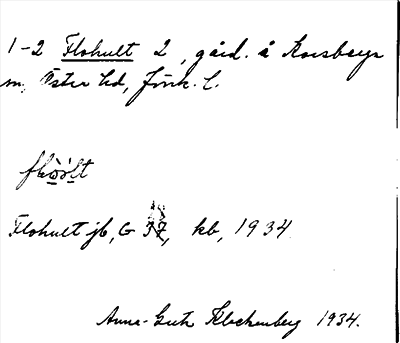 1-2 Flohult 2, gård. å Korsberga
m, Öster hd, Jönk. l.
flo̤ò̤lt
Flohult jb, G 37, kb, 1934
Anna-Greta Klockenberg 1934.